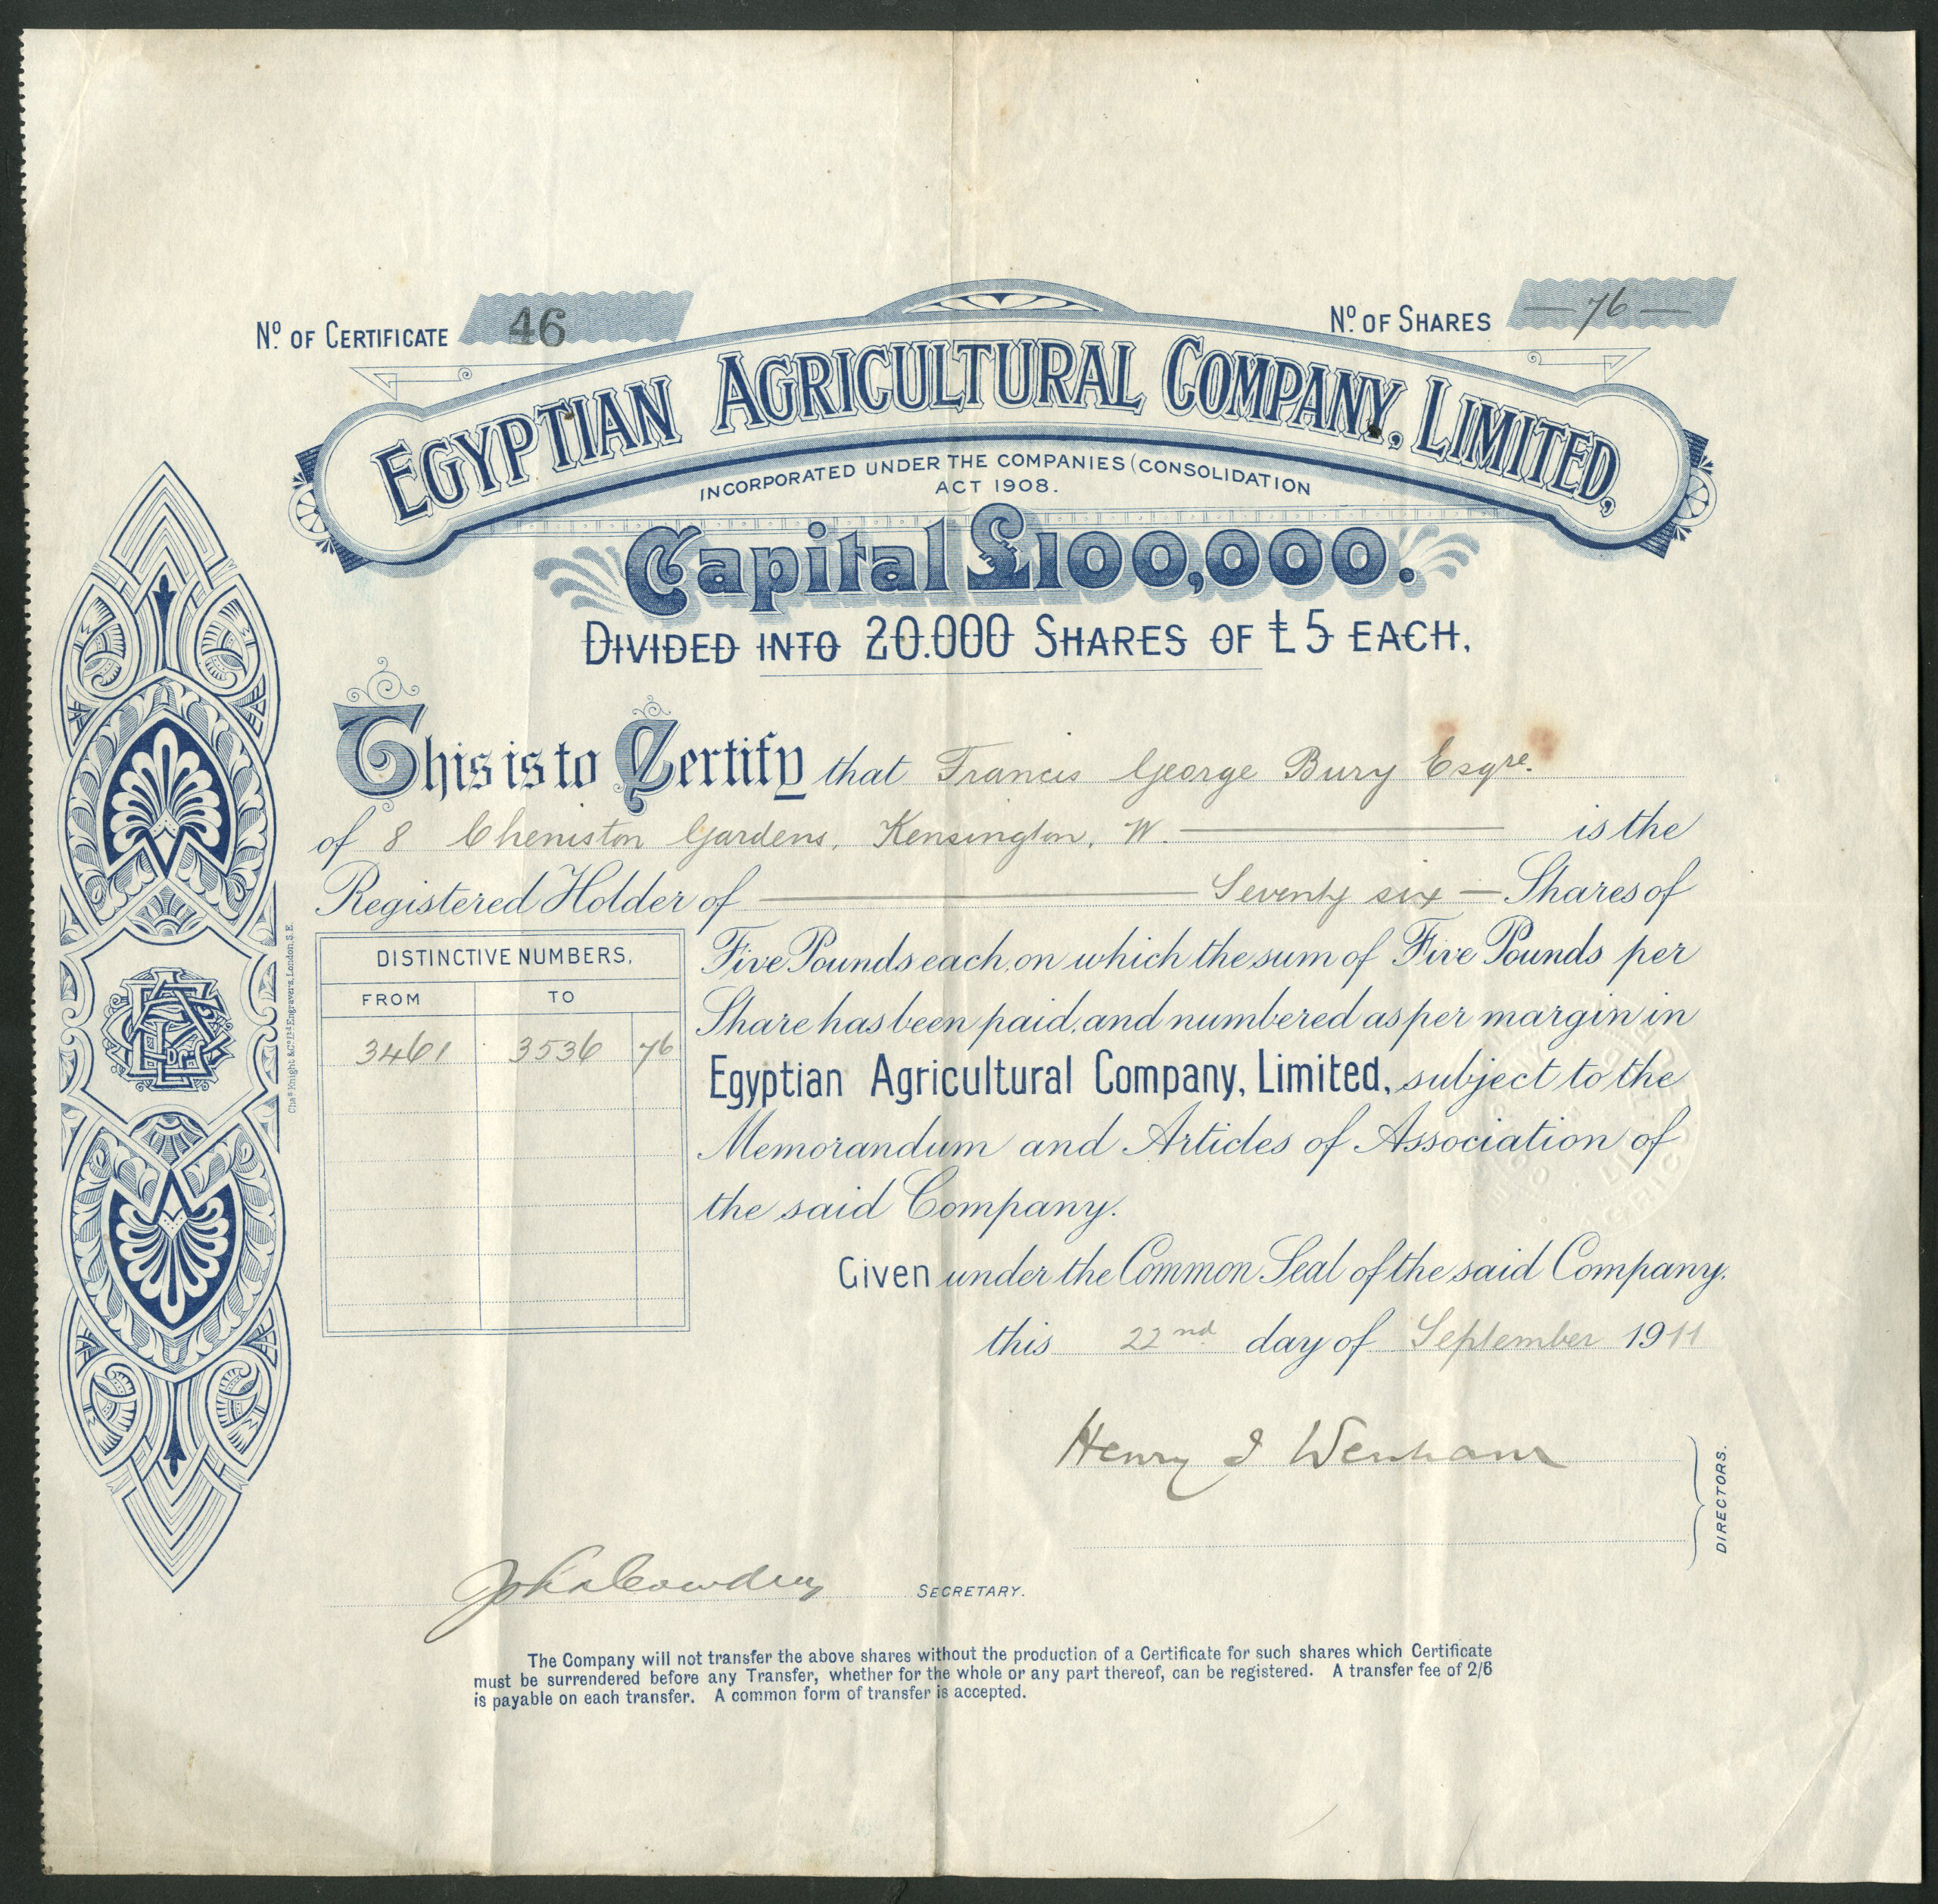 Nº OF CERTIFICATE 46
Nº OF SHARES — 76 —
EGYPTIAN AGRICULTURAL COMPANY, LIMITED,
INCORPORATED UNDER THE COMPANIES (CONSOLIDATION
ACT 1908.
Capital £100,000.
DIVIDED INTO 20.000 SHARES OF £5 EACH.
This is to Certify that Francis George Bury Esqre.
of 8 Cheniston Gardens, Kensington, W. is the
Registered Holder of Seventy six — Shares of
DISTINCTIVE NUMBERS.
FROM TO
3461 3536 76
Five Pounds each, on which the sum of Five Pounds per
Share has been paid, and numbered as per margin in
Egyptian Agricultural Company, Limited, subject to the
Memorandum and Articles of Association of
the said Company.
Given under the Common Seal of the said Company.
this 22nd day of September 1911
Henry J Wenham
DIRECTORS.
SECRETARY.
The Company will not transfer the above shares without the production of a Certificate for such shares which Certificate
must be surrendered before any Transfer, whether for the whole or any part thereof, can be registered. A transfer fee of 2/6
is payable on each transfer. A common form of transfer is accepted.
Chas Knight & Co Ltd Engravers, London, S.E.